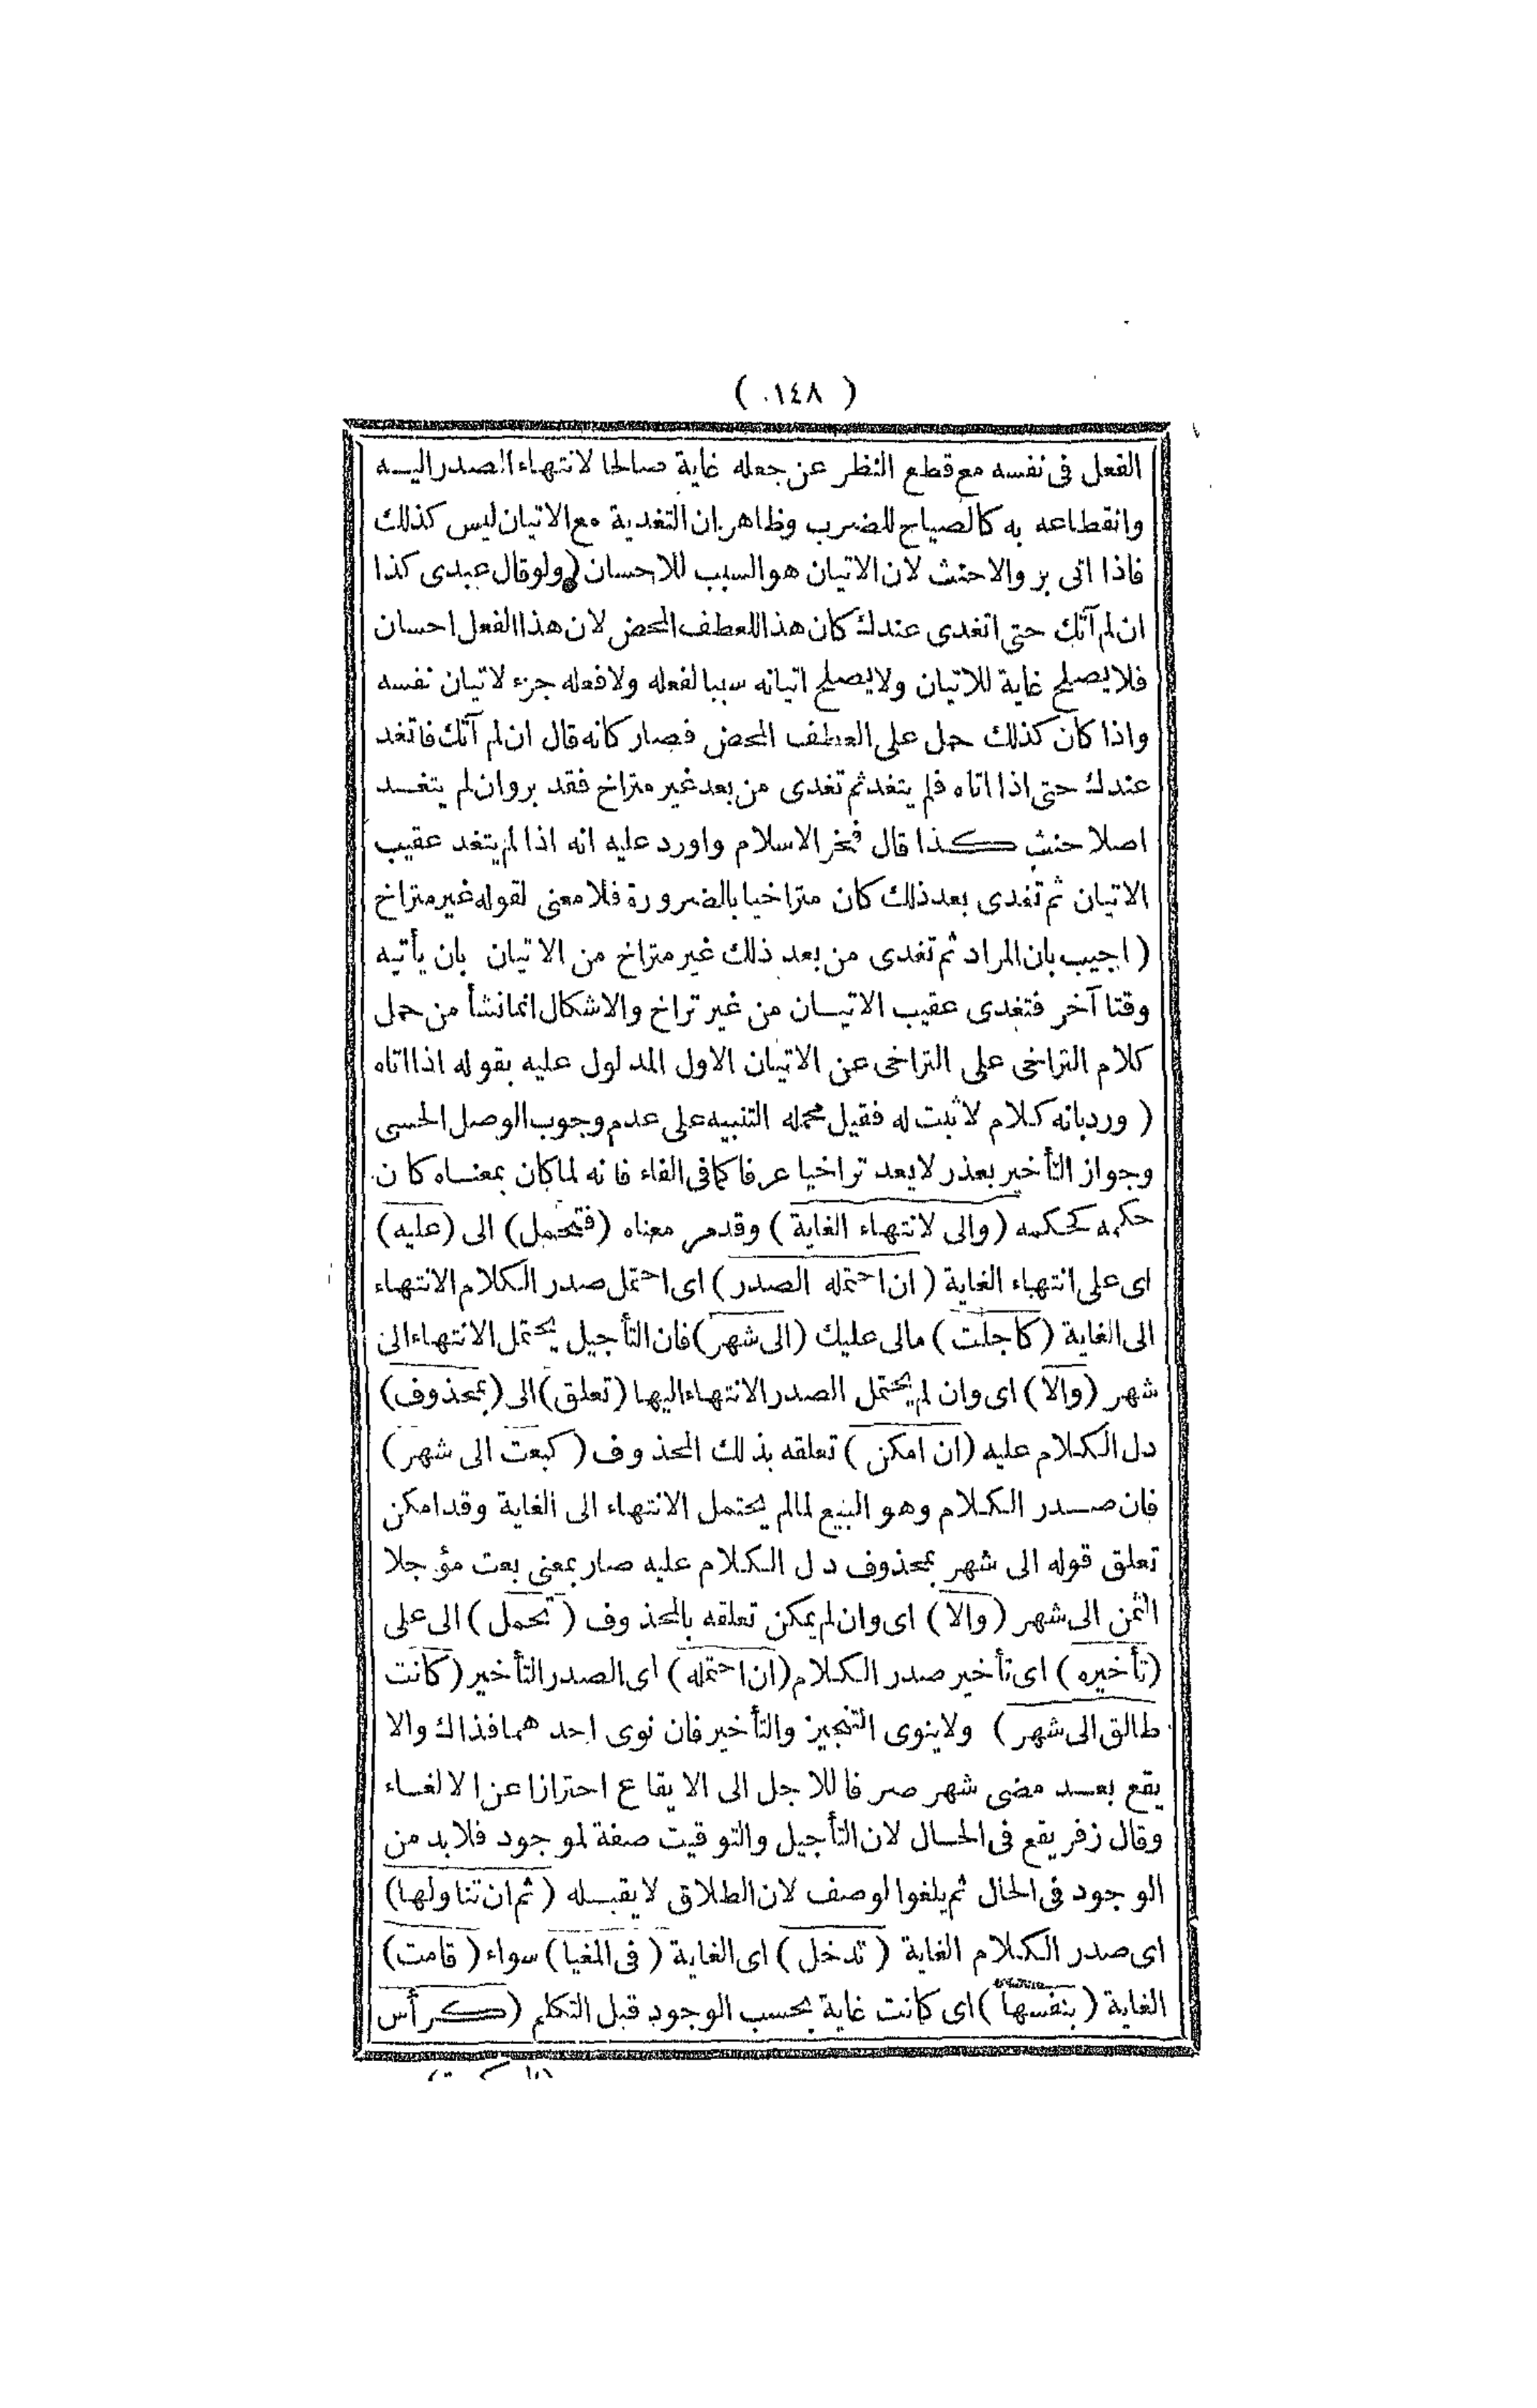 ( ١٤٨ )
الفعل فى نفسه مع قطع النظر عن جعله غاية صالحا لانتهاء الصدر اليه
وانقطاعه به كالصياح للضرب وظاهر ان التغدية مع الاتيان ليس كذلك
فاذا اتى بر والا حنث لان الاتيان هو السبب للاحسان ( ولو قال عبدى كذا
ان لم آتك حتى اتغدى عندك كان هذا للعطف المحض لان هذا الفعل احسان
فلا يصلح غاية للاتيان ولا يصلح اتيانه سببا لفعله ولا فعله جزء لاتيان نفسه
واذا كان كذلك حمل على العطف المحض فصار كانه قال ان لم آتك فاتغد
عندك حتى اذا اتاه فلم يتغد ثم تغدى من بعد غير متراخ فقد بر وان لم يتغد
اصلا حنث كذا قال فخر الاسلام واورد عليه انه اذا لم يتغد عقيب
الاتيان ثم تغدى بعد ذلك كان متراخيا بالضرورة فلا معنى لقوله غير متراخ
( اجيب بان المراد ثم تغدى من بعد ذلك غير متراخ من الاتيان بان يأتيه
وقتا آخر فتغدى عقيب الاتيان من غير تراخ والاشكال انما نشأ من حمل
كلام التراخى على التراخى عن الاتيان الاول المدلول عليه بقوله اذا اتاه
( ورد بانه كلام لا ثبت له فقيل محمله التنبيه على عدم وجوب الوصل الحسى
وجواز التأخير بعذر لا يعد تراخيا عرفا كما فى الفاء فانه لما كان بمعناه كان
حكمه كحكمه ( والى لانتهاء الغاية ) وقد مر معناه ( فتحمل ) الى ( عليه )
اى على انتهاء الغاية ( ان احتمله الصدر ) اى احتمل صدر الكلام الانتهاء
الى الغاية ( كاجلت ) مالى عليك ( الى شهر ) فان التأجيل يحتمل الانتهاء الى
شهر ( والا ) اى وان لم يحتمل الصدر الانتهاء اليها ( تعلق ) الى ( بمحذوف )
دل الكلام عليه ( ان امكن ) تعلقه بذلك المحذوف ( كبعت الى شهر )
فان صدر الكلام وهو البيع لما لم يحتمل الانتهاء الى الغاية وقد امكن
تعلق قوله الى شهر بمحذوف دل الكلام عليه صار بمعنى بعت مؤجلا
الثمن الى شهر ( والا ) اى وان لم يمكن تعلقه بالمحذوف ( تحمل ) الى على
( تأخيره ) اى تأخير صدر الكلام ( ان احتمله ) اى الصدر التأخير ( كانت
طالق الى شهر ) ولا ينوى التنجيز والتأخير فان نوى احدهما فذاك والا
يقع بعد مضى شهر صرفا للاجل الى الايقاع احترازا عن الالغاء
وقال زفر يقع فى الحال لان التأجيل والتوقيت صفة لموجود فلا بد من
الوجود فى الحال ثم يلغو الوصف لان الطلاق لا يقبله ( ثم ان تناولها )
اى صدر الكلام الغاية ( تدخل ) اى الغاية ( فى المغيا ) سواء ( قامت )
الغاية ( بنفسها ) اى كانت غاية بحسب الوجود قبل التكلم ( كرأس